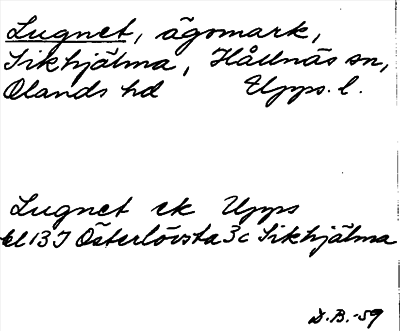 Lugnet, ägomark,
Sikhjälma, Hållnäs sn,
Olands hd Upps. l.
Lugnet ek Upps
bl 13 I Österlövsta 3c Sikhjälma
D.B. -59